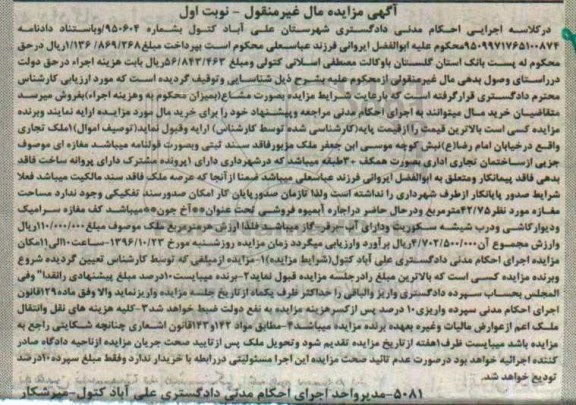 آگهی مزایده مال غیرمنقول - نوبت اول
درکلاسه اجرایی احکام مدنی دادگستری شهرستان علی آباد کتول بشماره ۹۵۰۶۰۴/وباستناد دادنامه
۹۵۰۹۹۷۱۷۶۵۱۰۰۸۷۴محکوم علیه ابوالفضل ایروانی فرزند عباسعلی محکوم است بپرداخت مبلغ۱/۱۳۶/۸۶۹/۲۶۸ریال درحق
محکوم له پست بانک استان گلستان باوکالت مصطفی اصلانی کتولی ومبلغ ۵۶/۸۴۳/۴۶۳ریال بابت هزینه اجراء درحق دولت
درراستای وصول بدهی مال غیرمنقولی ازمحکوم علیه بشرح ذیل شناسایی وتوقیف گردیده است که مورد ارزیابی کارشناس
محترم دادگستری قرارگرفته است که بارعایت شرایط مزایده بصورت مشاع(بمیزان محکوم به وهزینه اجراء)بفروش میرسد
متقاضیان خرید مال میتوانند به اجرای احکام مدنی مراجعه وپیشنهاد خود را برای خرید مال مورد مزایده ارایه نمایند وبرنده
مزایده کسی است بالاترین قیمت را ازقیمت پایه(کارشناسی شده توسط کارشناس) ارایه وقبول نماید(توصیف اموال)۱ملک تجاری
واقع درخیابان امام رضا(ع)نبش کوچه موسی ابن جعفر ملک مزبورفاقد سند ثبتی وبصورت قولنامه میباشد مغازه ای موصوف
جزیی ازساختمان تجاری اداری بصورت همکف ۳۰طبقه میباشد که درشهرداری دارای ۱پرونده مشترک دارای پروانه ساخت فاقد
بدهی فاقد پیمانکار ومتعلق به ابوالفضل ایروانی فرزند عباسعلی میباشد ضمنا از آنجا که عرصه ملک فاقد سند مالکیت میباشد فعلا
شرایط صدور پایانکار ازطرف شهرداری را نداشته است ولذا تازمان صدورپایان کار امکان صدورسند تفکیکی وجود ندارد مساحت
مغازه مورد نظر۴۲/۷۵مترمربع ودرحال حاضر دراجاره آبمیوه فروشی تحت عنوان**آخ جون**میباشد کف مغازه سرامیک
ودیوارکاشی ودرب شیشه سکوریت ودارای آب، برق، گاز میباشد فلذا ارزش هرمترمربع ملک موصوف مبلغ۱۱۰/۰۰۰/۰۰۰ریال
وارزش مجموع آن۴/۷۰۲/۵۰۰/۰۰۰ریال برآورد وارزیابی میگردد زمان مزایده روزشنبه مورخ ۱۳۹۶/۱۰/۲۳-ساعت۱۰الی۱۱مکان
مزایده اجرای احکام مدنی دادگستری علی آباد کتول(شرایط مزایده)۱- مزایده ازمبلغی که توسط کارشناس تعیین گردیده شروع
وبرنده مزایده کسی است که بالاترین مبلغ رادرجلسه مزایده قبول نماید۲-برنده میبایست۱۰درصد مبلغ پیشنهادی رانقدا" وفی
المجلس بحساب سپرده دادگستری واریز والباقی را حداکثر ظرف یکماه ازتاریخ جلسه مزایده واریزنماید والا وفق ماده۱۲۹قانون
اجرای احکام مدنی سپرده واریزی۱۰ درصد پس ازکسرهزینه مزایده به نفع دولت ضبط خواهد شد۳-کلیه هزینه های نقل وانتقال
ملک اعم ازعوارض مالیات وغیره بعهده برنده مزایده میباشد۴-مطابق مواد ۱۴۲و۱۴۳قانون اشعاری چنانچه شکایتی راجع به
مزایده باشد میبایست ظرف۱هفته ازتاریخ مزایده تقدیم شود وتحویل ملک پس ازتایید صحت جریان مزایده ازناحیه دادگاه صادر
کننده اجرائیه خواهد بود درصورت عدم تائید صحت مزایده این اجرا مسئولیتی دررابطه با خریدار ندارد وفقط مبلغ سپرده ۱۰درصد
تودیع خواهد شد.
۵۰۸۱-مدیرواحد اجرای احکام مدنی دادگستری علی آباد کتول-میرشکار